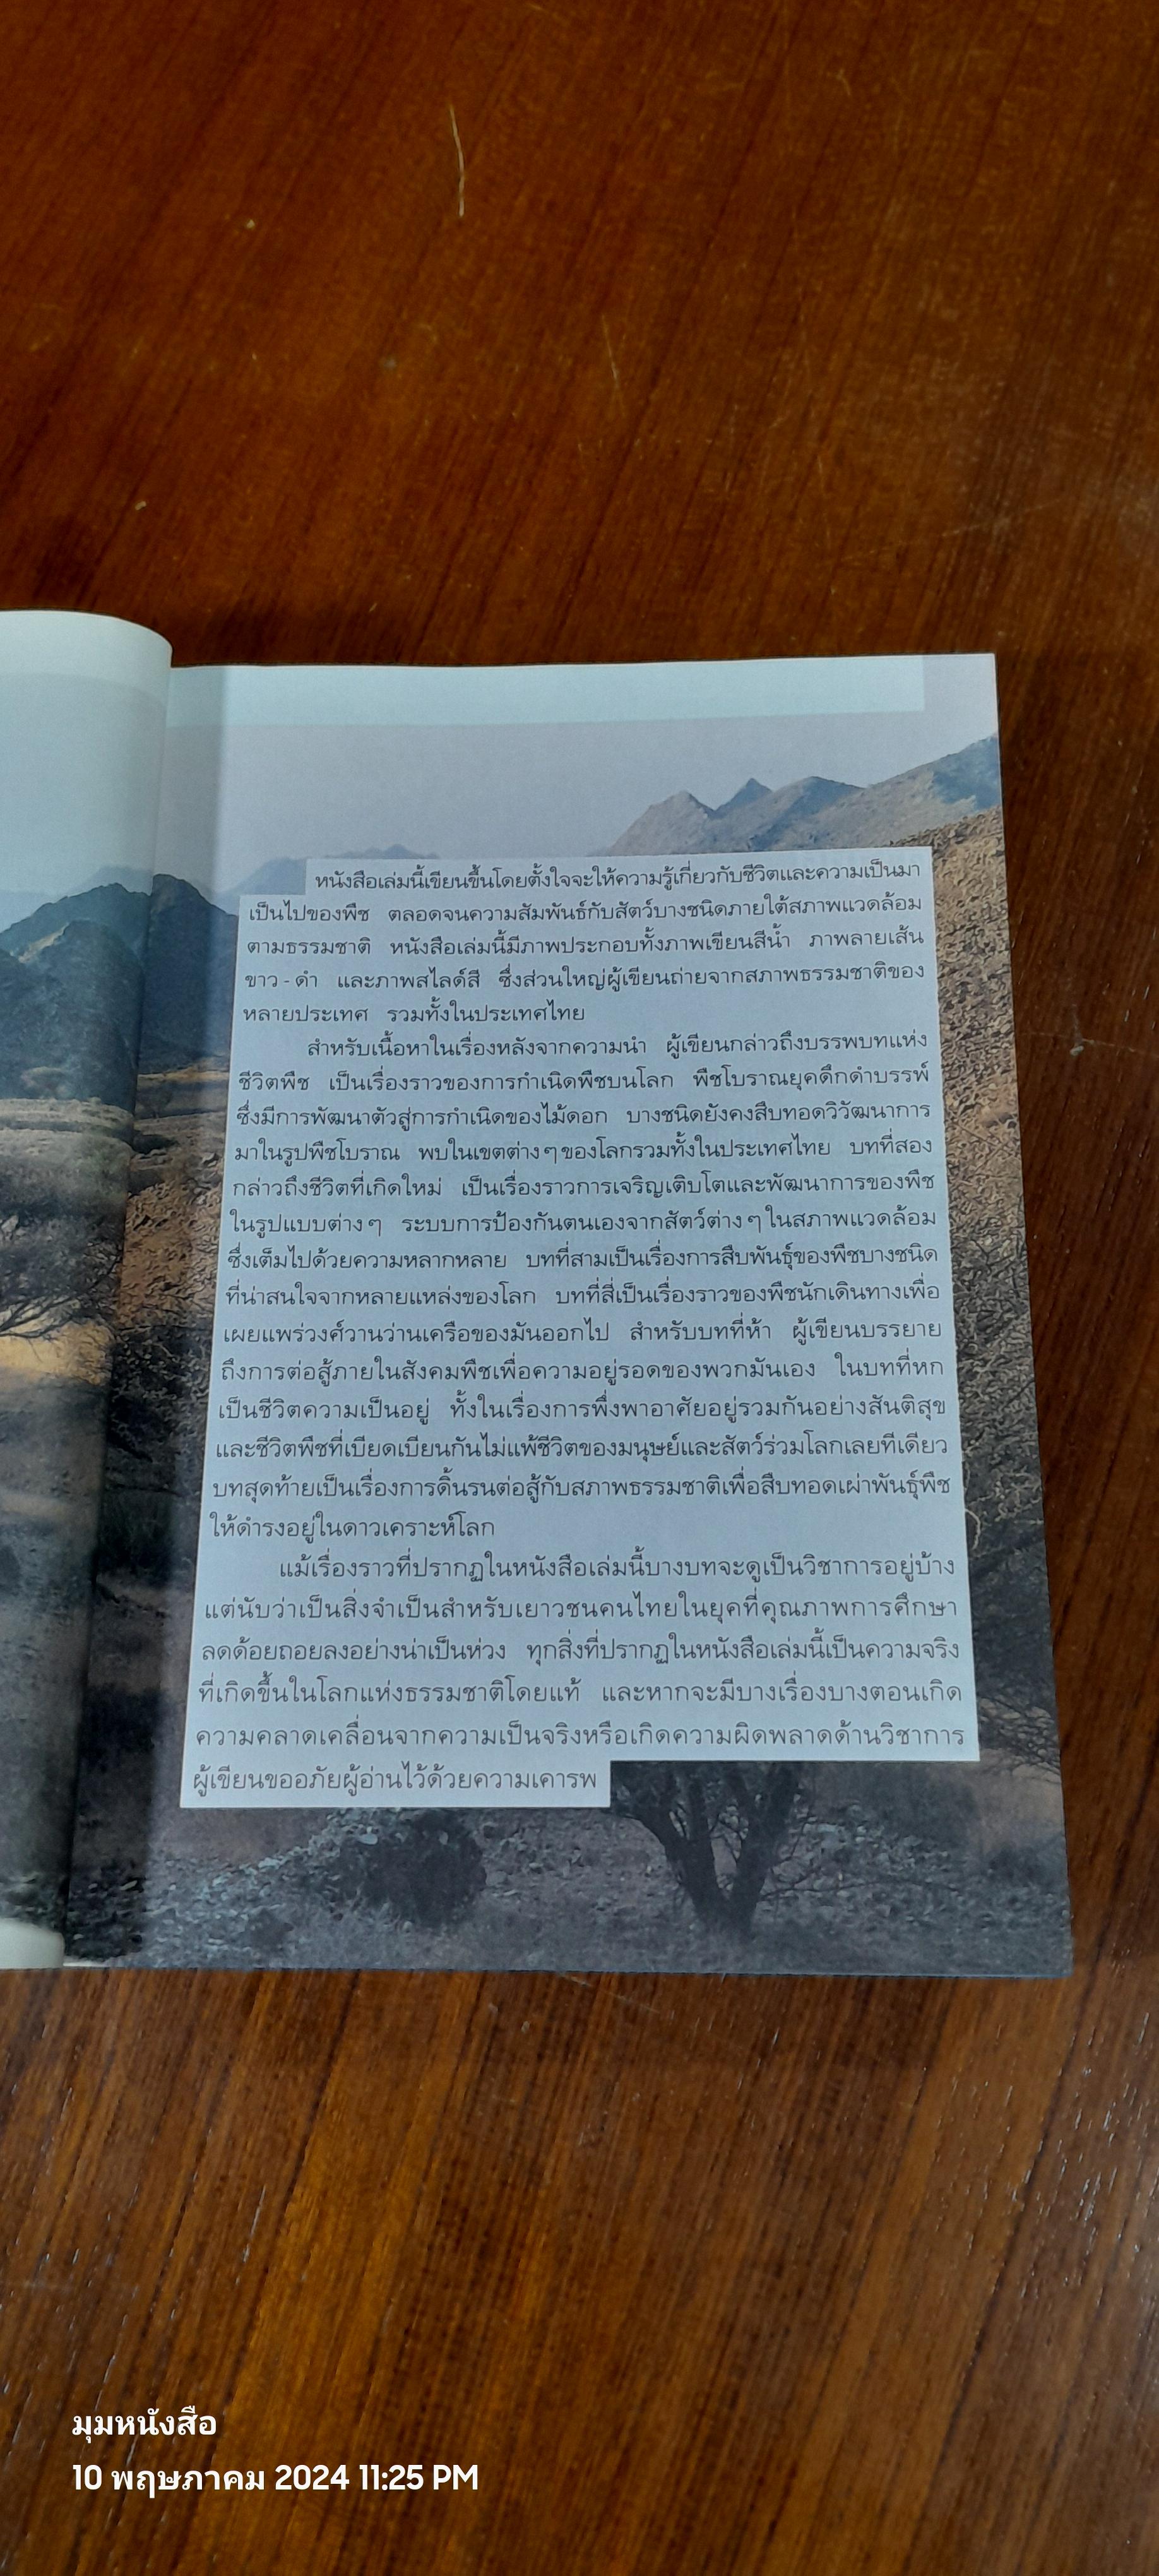 หนังสือเล่มนี้เขียนขึ้นโดยตั้งใจจะให้ความรู้เกี่ยวกับชีวิตและความเป็นมา
เป็นไปของพืช ตลอดจนความสัมพันธ์กับสัตว์บางชนิดภายใต้สภาพแวดล้อม
ตามธรรมชาติ หนังสือเล่มนี้มีภาพประกอบทั้งภาพเขียนสีน้ำ ภาพลายเส้น
ขาว - ดำ และภาพสไลด์สี ซึ่งส่วนใหญ่ผู้เขียนถ่ายจากสภาพธรรมชาติของ
หลายประเทศ รวมทั้งในประเทศไทย
สำหรับเนื้อหาในเรื่องหลังจากความนำ ผู้เขียนกล่าวถึงบรรพบทแห่ง
ชีวิตพืช เป็นเรื่องราวของการกำเนิดพืชบนโลก พืชโบราณยุคดึกดำบรรพ์
ซึ่งมีการพัฒนาตัวสู่การกำเนิดของไม้ดอก บางชนิดยังคงสืบทอดวิวัฒนาการ
มาในรูปพืชโบราณ พบในเขตต่าง ๆ ของโลกรวมทั้งในประเทศไทย บทที่สอง
กล่าวถึงชีวิตที่เกิดใหม่ เป็นเรื่องราวการเจริญเติบโตและพัฒนาการของพืช
ในรูปแบบต่าง ๆ ระบบการป้องกันตนเองจากสัตว์ต่าง ๆ ในสภาพแวดล้อม
ซึ่งเต็มไปด้วยความหลากหลาย บทที่สามเป็นเรื่องการสืบพันธุ์ของพืชบางชนิด
ที่น่าสนใจจากหลายแหล่งของโลก บทที่สี่เป็นเรื่องราวของพืชนักเดินทางเพื่อ
เผยแพร่วงศ์วานว่านเครือของมันออกไป สำหรับบทที่ห้า ผู้เขียนบรรยาย
ถึงการต่อสู้ภายในสังคมพืชเพื่อความอยู่รอดของพวกมันเอง ในบทที่หก
เป็นชีวิตความเป็นอยู่ ทั้งในเรื่องการพึ่งพาอาศัยอยู่รวมกันอย่างสันติสุข
และชีวิตพืชที่เบียดเบียนกันไม่แพ้ชีวิตของมนุษย์และสัตว์ร่วมโลกเลยทีเดียว
บทสุดท้ายเป็นเรื่องการดิ้นรนต่อสู้กับสภาพธรรมชาติเพื่อสืบทอดเผ่าพันธุ์พืช
ให้ดำรงอยู่ในดาวเคราะห์โลก
แม้เรื่องราวที่ปรากฏในหนังสือเล่มนี้บางบทจะดูเป็นวิชาการอยู่บ้าง
แต่นับว่าเป็นสิ่งจำเป็นสำหรับเยาวชนคนไทยในยุคที่คุณภาพการศึกษา
ลดด้อยถอยลงอย่างน่าเป็นห่วง ทุกสิ่งที่ปรากฏในหนังสือเล่มนี้เป็นความจริง
ที่เกิดขึ้นในโลกแห่งธรรมชาติโดยแท้ และหากจะมีบางเรื่องบางตอนเกิด
ความคลาดเคลื่อนจากความเป็นจริงหรือเกิดความผิดพลาดด้านวิชาการ
ผู้เขียนขออภัยผู้อ่านไว้ด้วยความเคารพ
มุมหนังสือ
10 พฤษภาคม 2024 11:25 PM